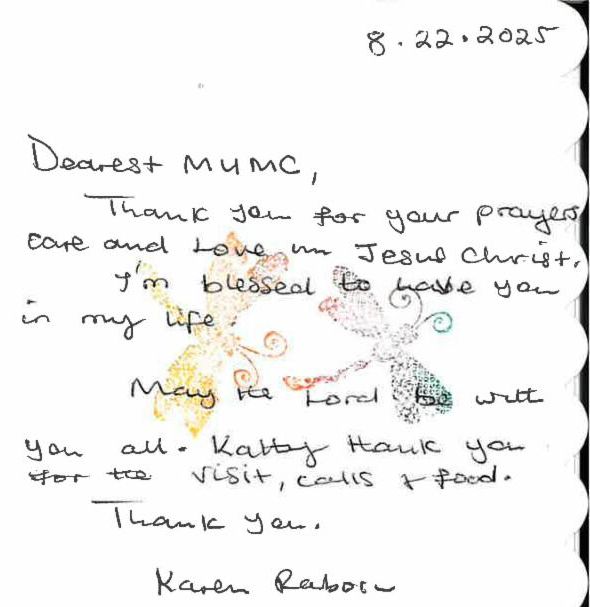 8.22.2025
Dearest MUMC,
Thank you for your prayers
care and Love in Jesus Christ.
I'm blessed to have you
in my life.
May the Lord be with
you all. Kathy thank you
for the visit, calls + food.
Thank you.
Karen